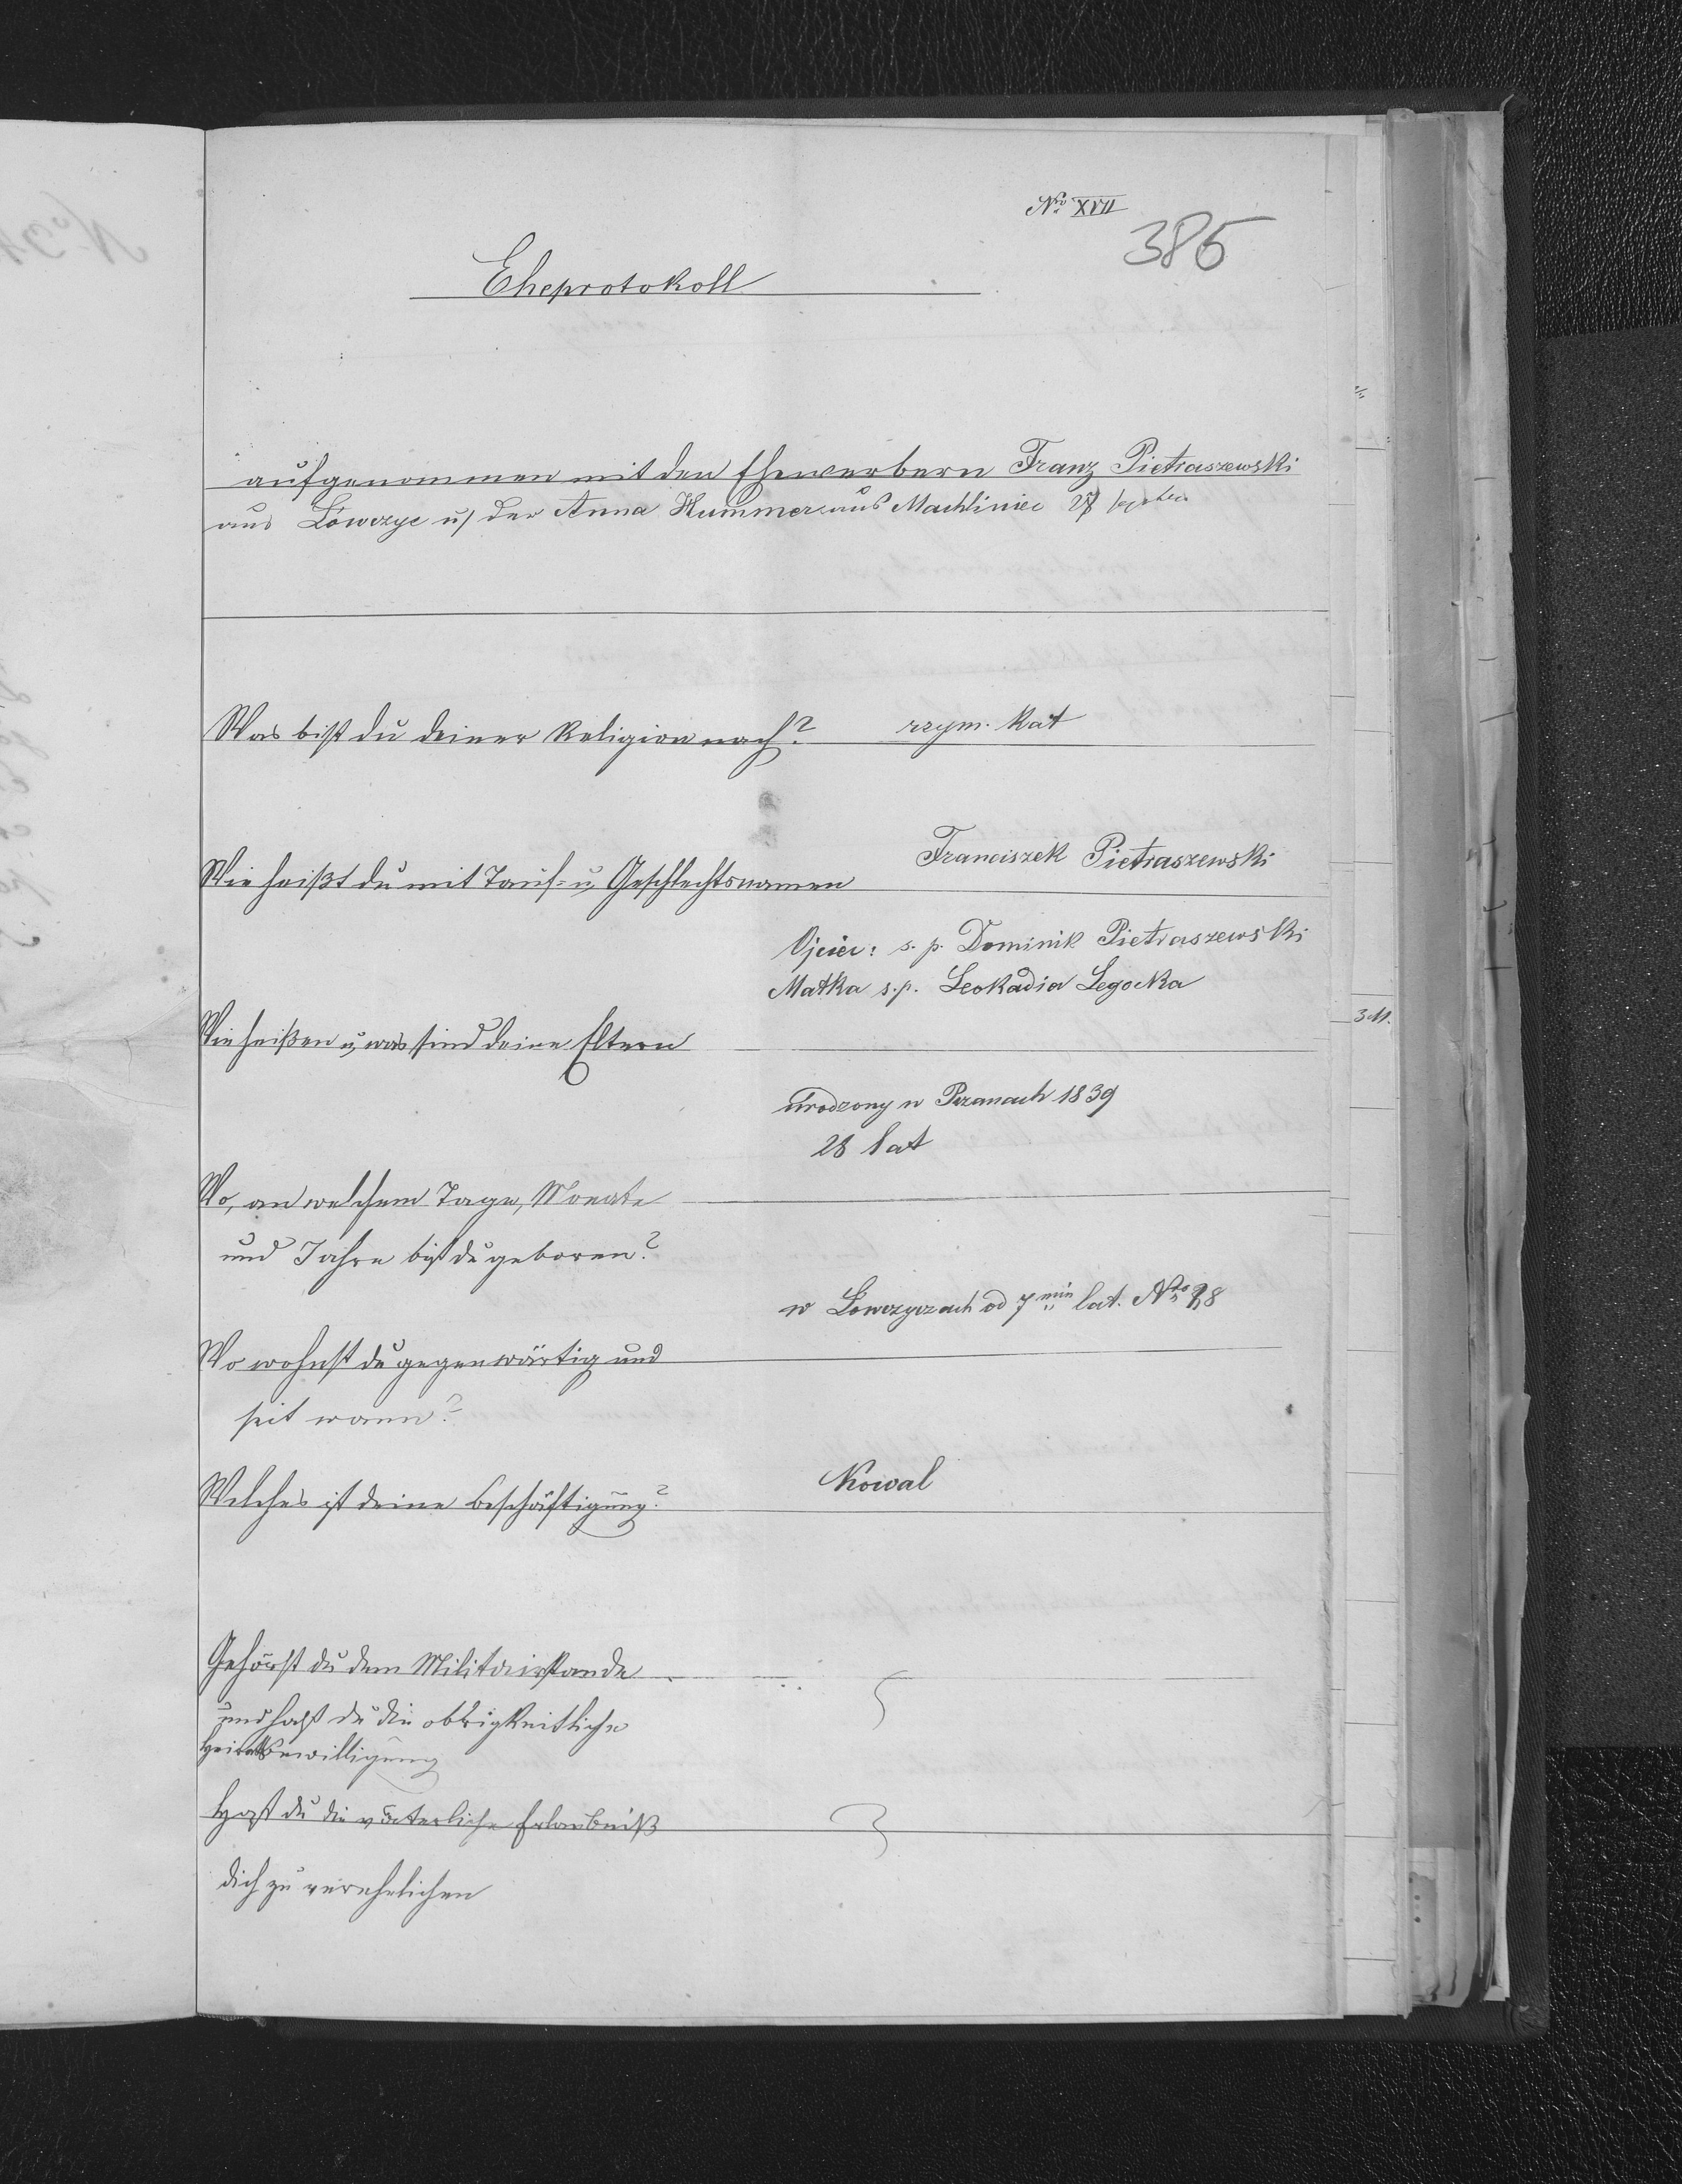 Nro XVII
386
Eheprotokoll
aufgenommen mit den Ehewerbern Franz Pietraszewski
aus Łowczyc u/ der Anna Hummer aus Machliniec
Was bist du deiner Religion nach? rzym. Kat
Wie heißt du mit Tauf- u. Geschlechtsnamen Franciszek Pietraszewski
Ojciec: s. p. Dominik Pietraszewski
Matka s. p. Leokadia Legocka
Wie heißen u. was sind deine Eltern
urodzony w 1839
28 lat
Wo, an welchem Tage, Monate
und Jahre bist du geboren?
w Lowczycach od 7miu lat. Nro 28
Wo wohnst du gegenwärtig und
seit wann?
Welches ist deine Beschäftigung? Kowal
Gehörst du dem Militairstande
und hast du die obrigkeitliche
Heiratsbewilligung
Hast du die väterliche Erlaubniß
dich zu verehelichen